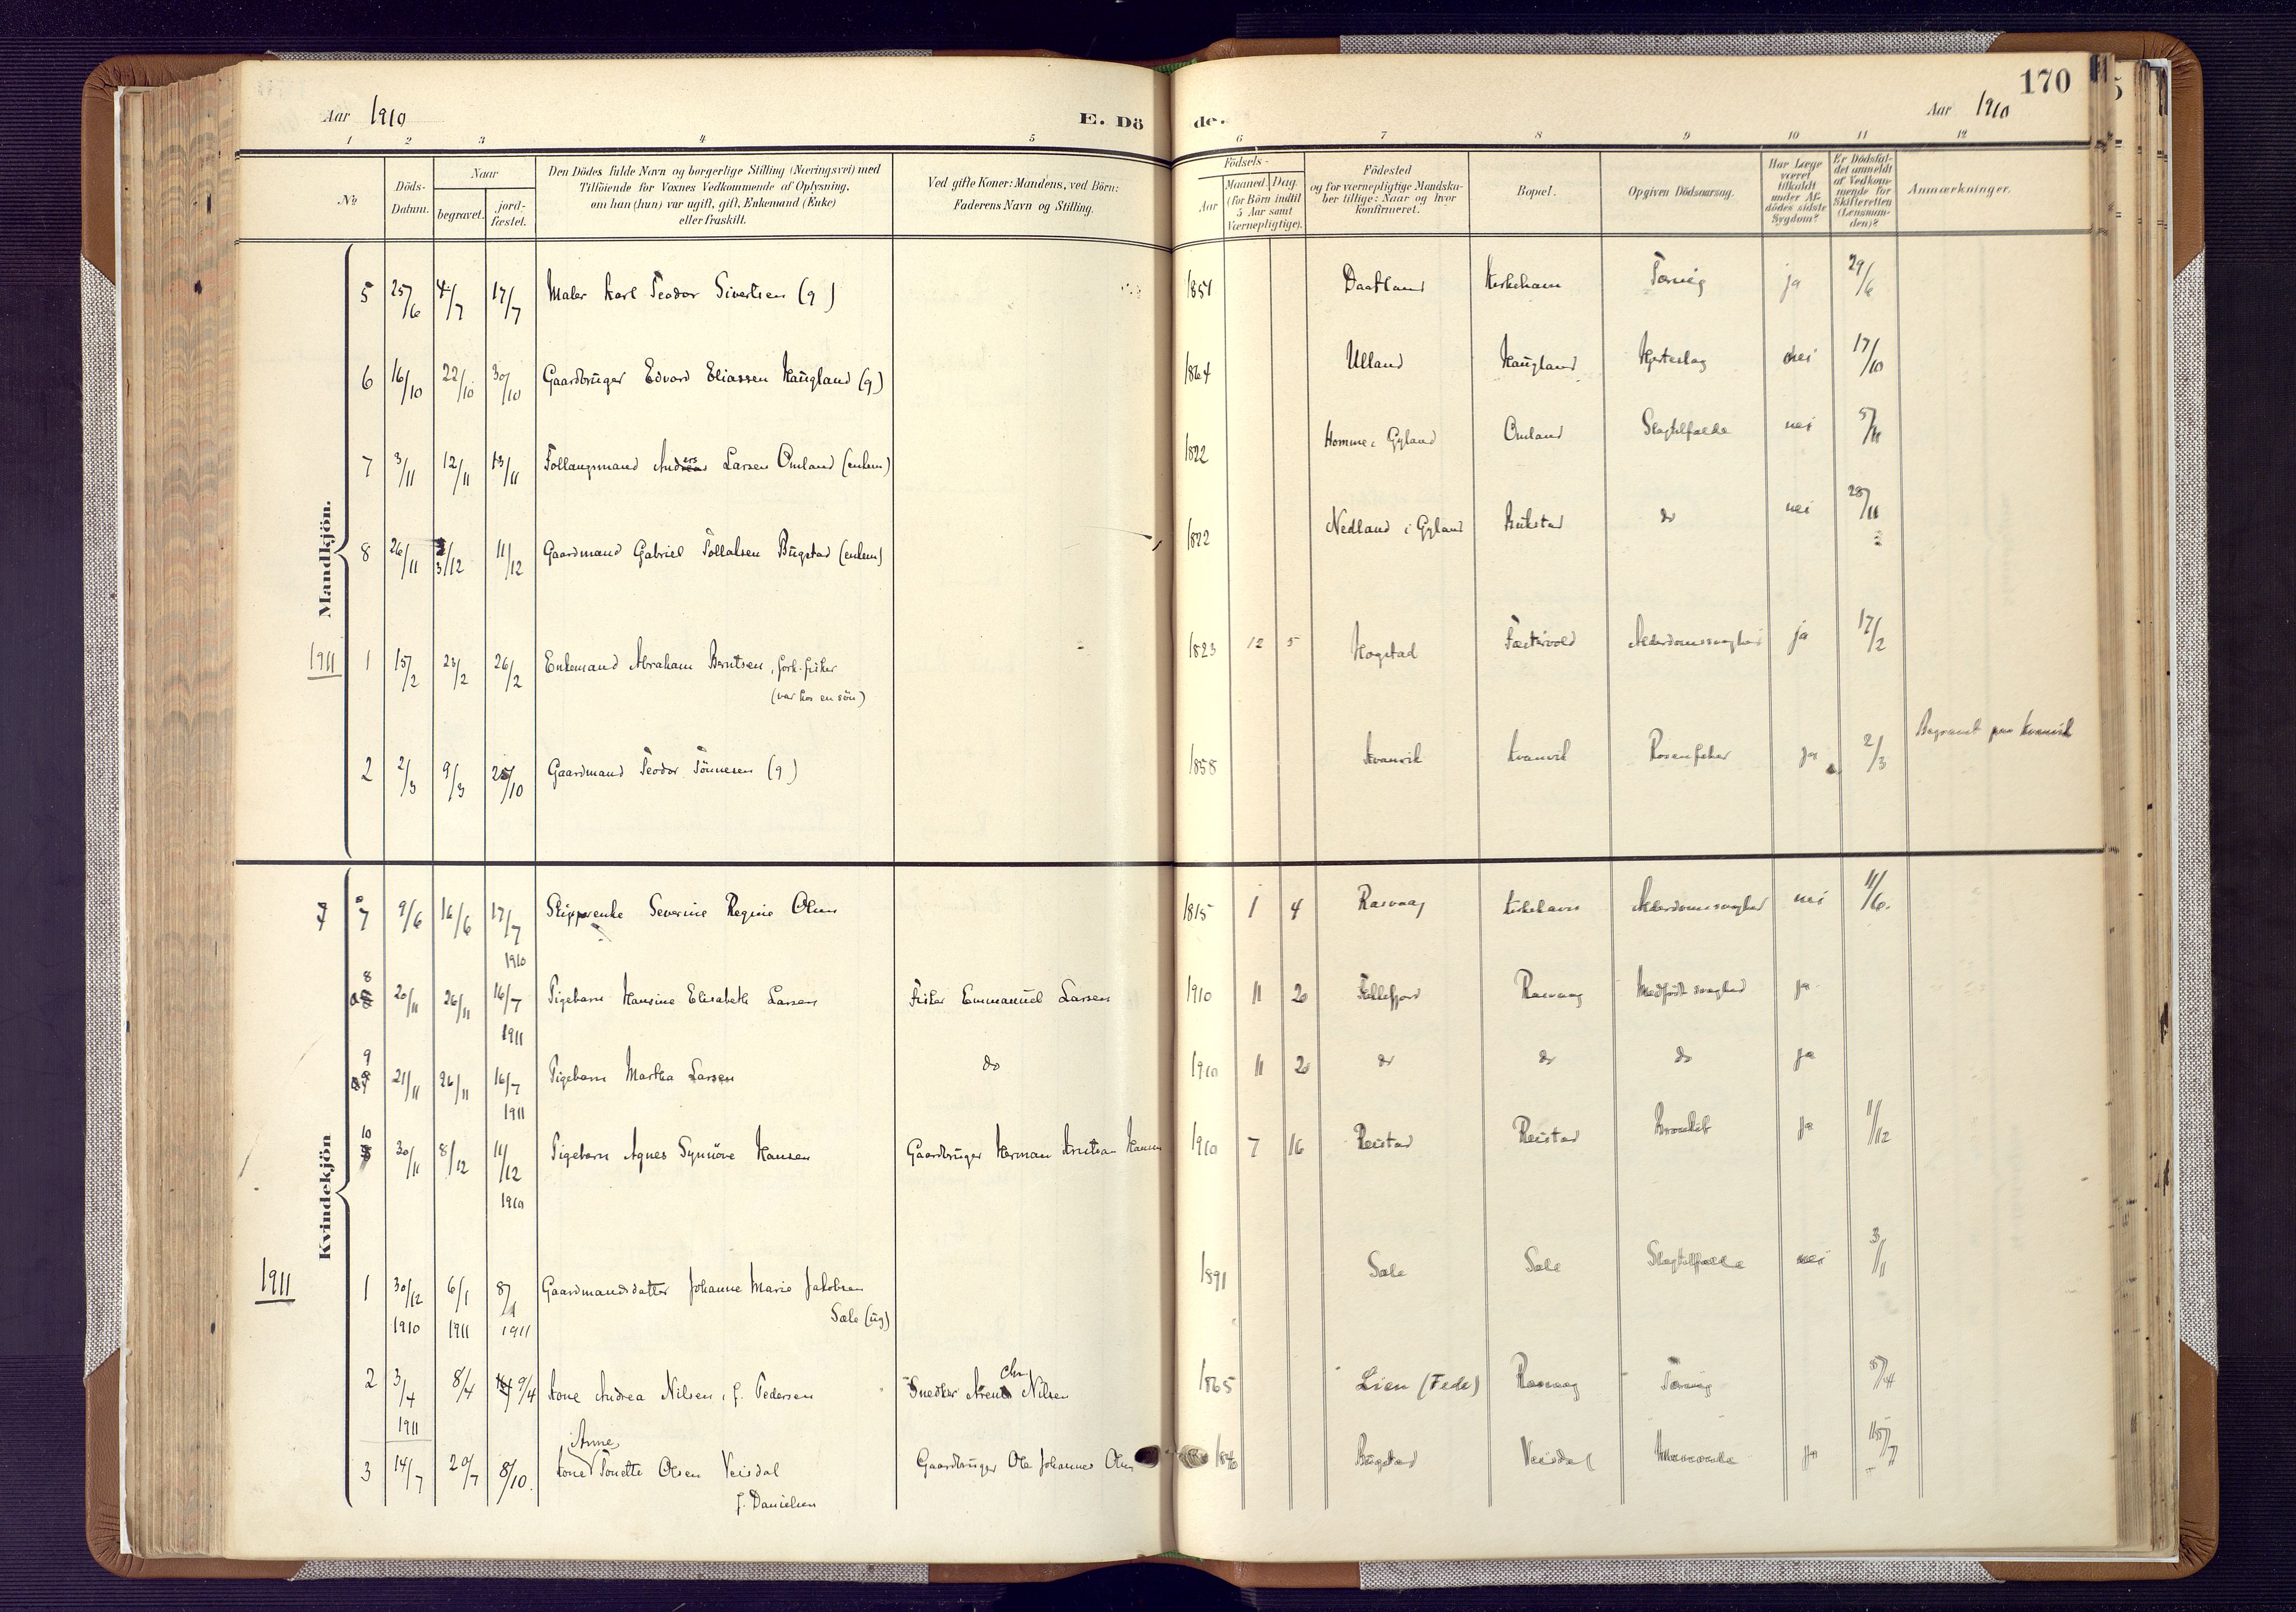 170
Aar 1910
E. Dö de.
Aar 1910
1 2 3 4 5 6 7 8 9 10 11 12
№
Döds-Datum.
Naar
begravet.
jord-fæstet.
Den Dödes fulde Navn og borgerlige Stilling (Næringsvei) med
Tilföiende for Voxnes Vedkommende af Oplysning,
om han (hun) var ugift, gift, Enkemand (Enke)
eller fraskilt.
Ved gifte Koner: Mandens, ved Börn:
Faderens Navn og Stilling.
Födsels-
Aar
Maaned. Dag.
(for Börn indtil
5 Aar samt
Værnepligtige).
Födested
og for værnepligtige Mandska-
ber tillige: Naar og hvor
konfirmeret.
Bopæl.
Opgiven Dödsaarsag.
Har Læge
været
tilkaldt
under Af-
dödes sidste
Sygdom?
Er Dödsfal-
det anmeldt
af Vedkom-
mende for
Skifteretten
(Lensman-
den)?
Anmærkninger.
Mandkjön.
5 25/6 4/7 17/7 Maler Karl Teodor Sivertsen (g) 1851 Daatland Kirkehavn Tæring ja 29/6
6 16/10 22/10 30/10 Gaardbruger Edvard Eliassen Haugland (g) 1864 Ulland Haugland Hjerteslag nei 17/10
7 3/11 12/11 13/11 Follaugsmand Anders Larsen Omland (enkem) 1822 Homme i Gyland Omland Slagtilfælde nei 5/11
8 26/11 3/12 11/12 Gaardmand Gabriel Tollaksen Bugstad (enkem) 1822 Nedland i Gyland do nei 28/11
1911
1 15/2 23/2 26/2 Enkemand Abraham Berntsen, forh. fisker 1823 12 5 Hogstad Alderdomssvaghed ja 17/2
(var hos en sön)
2 2/3 9/3 25/10 Gaardmand Teodor Tönnesen (g) 1858 Kvanvik Kvanvik Rosenfeber ja 2/3 Begravet paa Kvanvik
Kvindekjön
7 7 9/6 16/6 17/7 1910 Skipperenke Severine Regine Olsen 1815 1 4 Rasvaag Kirkehavn Alderdomssvaghed nei 11/6.
8 20/11 26/11 16/7 1911 Pigebarn Hansine Elisabeth Larsen Fisker Emmanuel Larsen 1910 11 20 Fellefjord Rasvaag Medfödt svaghed ja
9 21/11 26/11 16/7 1911 Pigebarn Martha Larsen do 1910 11 20 do do do ja
10 30/11 8/12 11/12 1910 Pigebarn Agnes Synnöve Hansen Gaardbruger Herman Kristian Hansen 1910 7 16 Reistad Reistad Bronkit ja 11/12
1911
1 30/12 1910 6/1 1911 8/1 1911 Gaardmandsdatter Johanne Marie Jakobsen 1891 Sæle Sæle Slagtilfælde nei 3/1
Sæle (ug)
2 3/4 1911 8/4 9/4 Kone Andrea Nilsen, f. Pedersen Snedker Chr Nilsen 1865 Lien (Fede) Rasvaag Tæring 5/4
3 14/7 20/7 8/10. Kone Anne Tonette Olsen Veisdal Gaardbruger Ole Johannes Olsen 1846 Bugstad Veisdal ja 15/7
f. Danielsen